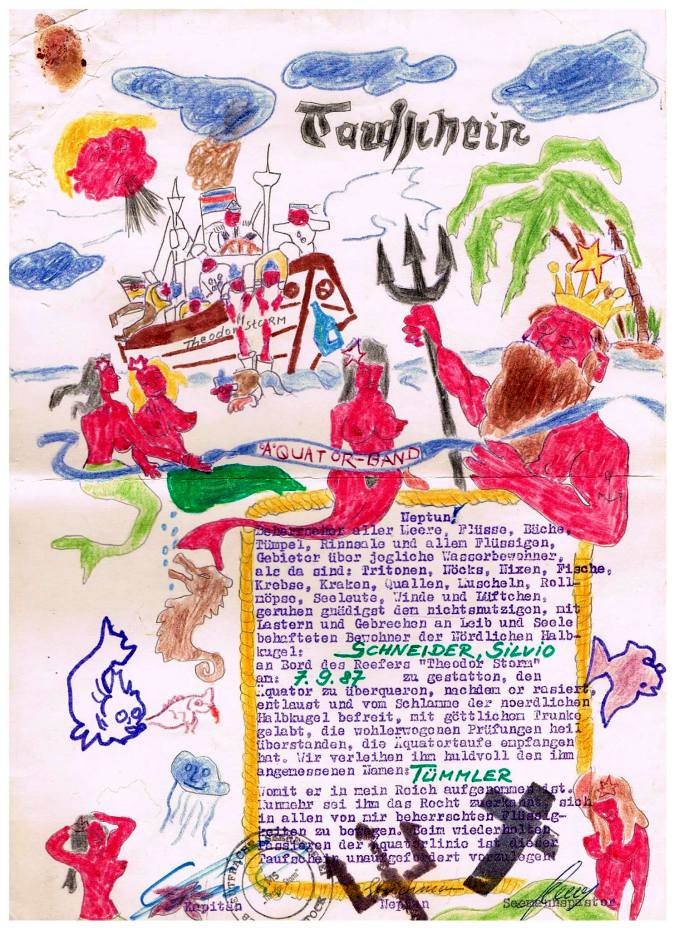 Taufschein
Theodor Storm
ÄQUATOR-BAND
Neptun,
Beherrscher aller Meere, Flüsse, Bäche,
Tümpel, Rinnsale und allen Flüssigen,
Gebieter über jegliche Wasserbewohner,
als da sind: Tritonen, Nöcks, Nixen, Fische,
Krebse, Kraken, Quallen, Muscheln, Roll-
möpse, Seeleute, Winde und Lüftchen,
geruhen gnädigst dem nichtsnutzigen, mit
Lastern und Gebrechen an Leib und Seele
behafteten Bewohner der Nördlichen Halb-
kugel: SCHNEIDER, SILVIO
an Bord des Reefers "Theodor Storm"
am: 7.9.87 zu gestatten, den
Äquator zu überqueren, nachdem er rasiert,
entlaust und vom Schlamme der noerdlichen
Halbkugel befreit, mit göttlichem Trunke
gelabt, die wohlerwogenen Prüfungen heil
überstanden, die Äquatortaufe empfangen
hat. Wir verleihen ihm huldvoll den ihm
angemessenen Namen: TÜMMLER
Womit er in mein Reich aufgenommen ist.
Nunmehr sei ihm das Recht zuerkannt, sich
in allen von mir beherrschten Flüssig-
keiten zu bewegen. Beim wiederholten
Passieren der Äquatorlinie ist dieser
Taufschein unaufgefordert vorzulegen!
Kapitän Neptun Seemannspastor